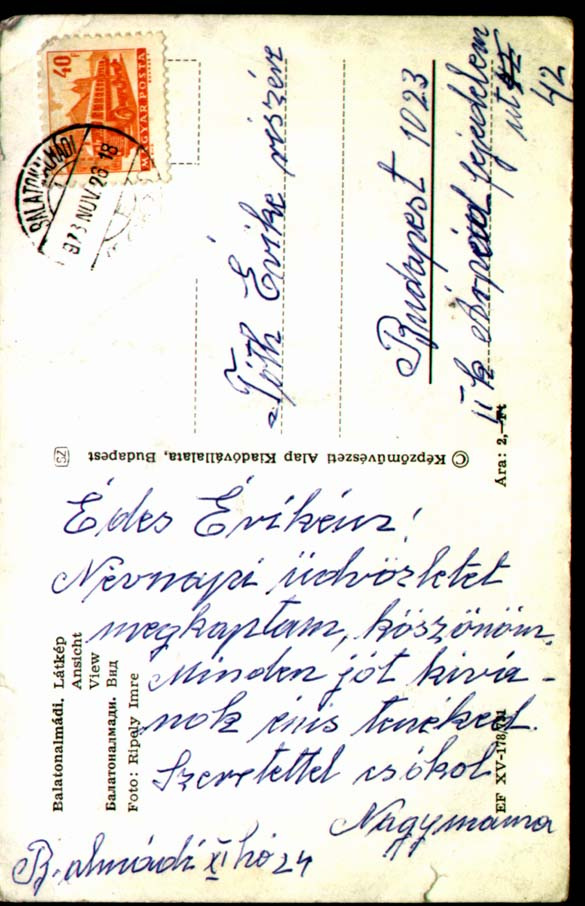 Édes Évikém!
Névnapi üdvözletet
megkaptam, köszönöm.
Minden jót kívá-
nok énis tenéked.
Szeretettel csókol
Nagymama
B.almádi XI hó 24
Balatonalmádi. Látkép
Ansicht
View
Балатоналмади. Вид
Foto: Ripely Imre
© Képzőművészeti Alap Kiadóvállalata, Budapest
SZ
40 f
MAGYAR POSTA
BALATONALMÁDI
973 NOV. 26 18
Tóth Évike részére
Budapest 1023
II k Árpád fejedelem
út
42
Ára: 2,— Ft
EF XV-178/731